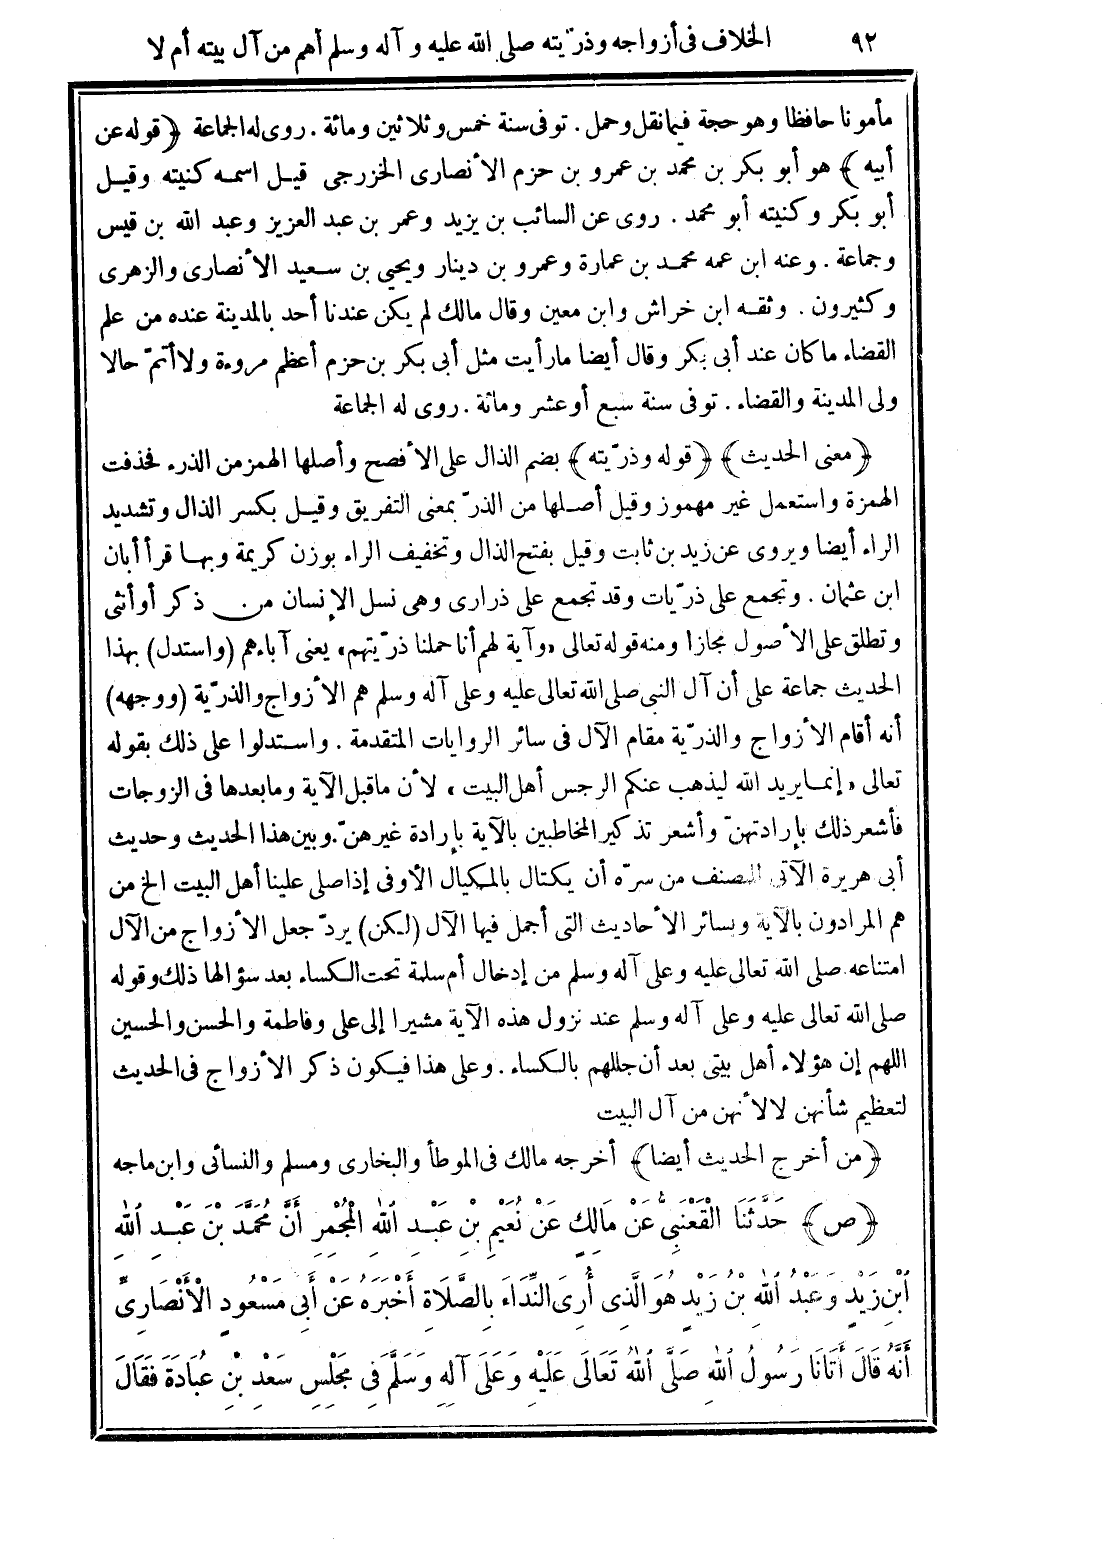 ٩٢ الخلاف فى أزواجه وذرّيته صلى الله عليه وآله وسلم أهم من آل بيته أم لا
مأمونا حافظا وهو حجة فيما نقل وحمل . توفى سنة خمس وثلاثين ومائة . روى له الجماعة ﴿قوله عن
أبيه﴾ هو أبو بكر بن محمد بن عمرو بن حزم الأنصارى الخزرجى قيل اسمه كنيته وقيل
أبو بكر وكنيته أبو محمد . روى عن السائب بن يزيد وعمر بن عبد العزيز وعبد الله بن قيس
وجماعة . وعنه ابن عمه محمد بن عمارة وعمرو بن دينار ويحيى بن سعيد الأنصارى والزهرى
وكثيرون . وثقه ابن خراش وابن معين وقال مالك لم يكن عندنا أحد بالمدينة عنده من علم
القضاء ما كان عند أبى بكر وقال أيضا ما رأيت مثل أبى بكر بن حزم أعظم مروءة ولا أتمّ حالا
ولى المدينة والقضاء . توفى سنة سبع أو عشر ومائة . روى له الجماعة
﴿معنى الحديث﴾ ﴿قوله وذرّيته﴾ بضم الذال على الأفصح وأصلها الهمز من الذرء فحذفت
الهمزة واستعمل غير مهموز وقيل أصلها من الذرّ بمعنى التفريق وقيل بكسر الذال وتشديد
الراء أيضا ويروى عن زيد بن ثابت وقيل بفتح الذال وتخفيف الراء بوزن كريمة وبها قرأ أبان
ابن عثمان . وتجمع على ذرّيات وقد تجمع على ذرارى وهى نسل الإنسان من ذكر أو أنثى
وتطلق على الأصول مجازا ومنه قوله تعالى «وآية لهم أنا حملنا ذرّيتهم» يعنى آباءهم (واستدل) بهذا
الحديث جماعة على أن آل النبى صلى الله تعالى عليه وعلى آله وسلم هم الأزواج والذرّية (ووجهه)
أنه أقام الأزواج والذرّية مقام الآل فى سائر الروايات المتقدمة . واستدلوا على ذلك بقوله
تعالى «إنما يريد الله ليذهب عنكم الرجس أهل البيت» لأن ما قبل الآية وما بعدها فى الزوجات
فأشعر ذلك بإرادتهنّ وأشعر تذكير المخاطبين بالآية بإرادة غيرهنّ . وبين هذا الحديث وحديث
أبى هريرة الآتى للمصنف من سرّه أن يكتال بالمكيال الأوفى إذا صلى علينا أهل البيت الخ من
هم المرادون بالآية وبسائر الأحاديث التى أجمل فيها الآل (لكن) يردّ جعل الأزواج من الآل
امتناعه صلى الله تعالى عليه وعلى آله وسلم من إدخال أم سلمة تحت الكساء بعد سؤالها ذلك وقوله
صلى الله تعالى عليه وعلى آله وسلم عند نزول هذه الآية مشيرا إلى على وفاطمة والحسن والحسين
اللهم إن هؤلاء أهل بيتى بعد أن جللهم بالكساء . وعلى هذا فيكون ذكر الأزواج فى الحديث
لتعظيم شأنهن لا لأنهن من آل البيت
﴿من أخرج الحديث أيضا﴾ أخرجه مالك فى الموطأ والبخارى ومسلم والنسائى وابن ماجه
﴿ص﴾ حَدَّثَنَا الْقَعْنَبِىُّ عَنْ مَالِكٍ عَنْ نُعَيْمِ بْنِ عَبْدِ اللهِ الْمُجْمِرِ أَنَّ مُحَمَّدَ بْنَ عَبْدِ اللهِ
ابْنِ زَيْدٍ وَعَبْدُ اللهِ بْنُ زَيْدٍ هُوَ الَّذِى أُرِىَ النِّدَاءَ بِالصَّلَاةِ أَخْبَرَهُ عَنْ أَبِى مَسْعُودٍ الْأَنْصَارِىِّ
أَنَّهُ قَالَ أَتَانَا رَسُولُ اللهِ صَلَّى اللهُ تَعَالَى عَلَيْهِ وَعَلَى آلِهِ وَسَلَّمَ فِى مَجْلِسِ سَعْدِ بْنِ عُبَادَةَ فَقَالَ